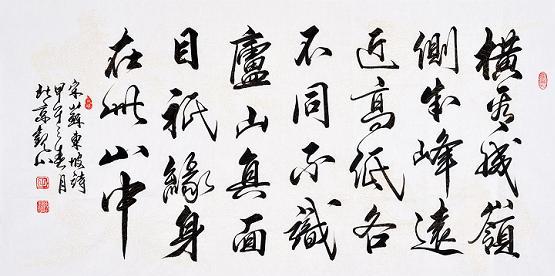 橫看成嶺
側成峰遠
近高低各
不同不識
廬山真面
目祇緣身
在此山中
宋蘇東坡詩
甲午之春月
北京觀山